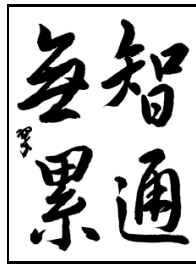 智通
無累